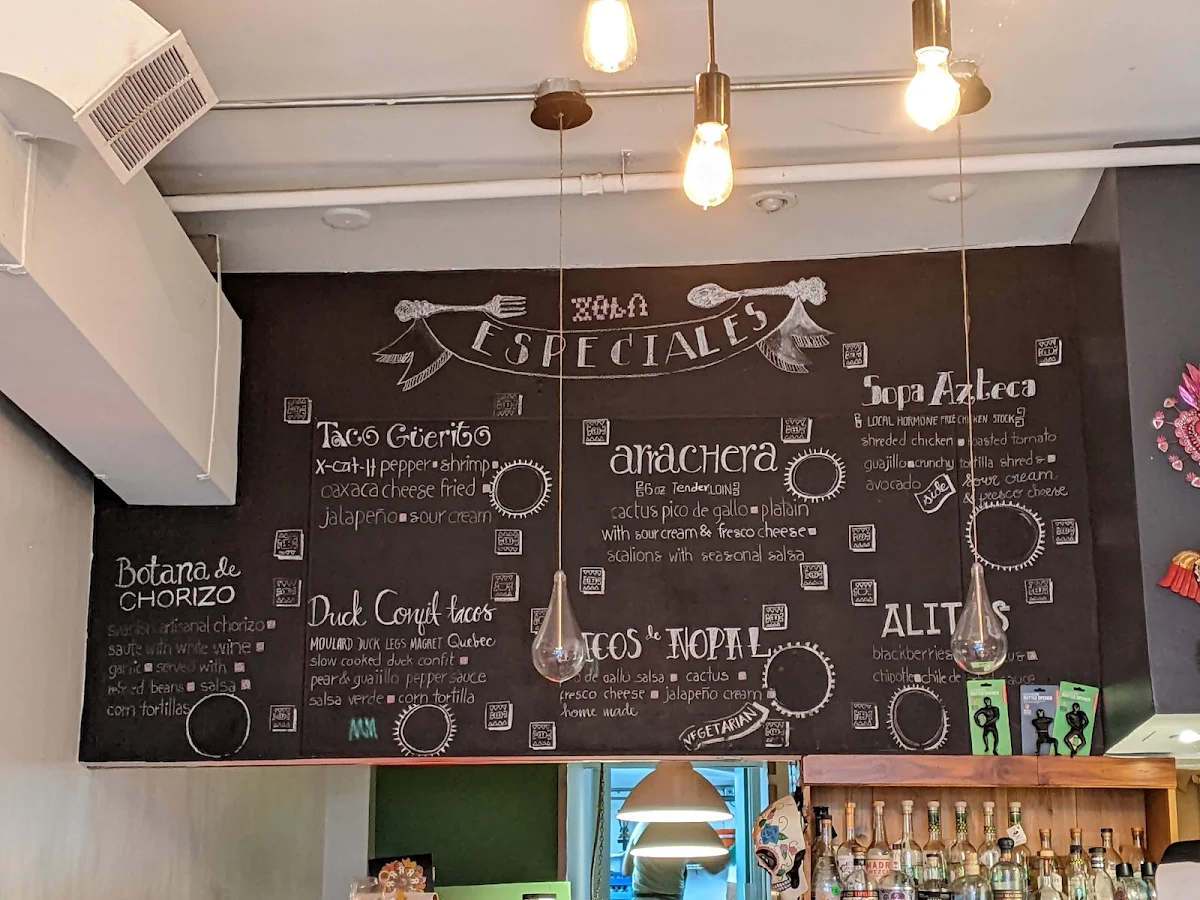 XOLA
ESPECIALES
Taco Güerito
X-cat-H pepper shrimp
oaxaca cheese fried
jalapeño sour cream
arrachera
6 oz TenderLOIN
cactus pico de gallo platain
with sour cream & fresco cheese
scalions with seasonal salsa
Sopa Azteca
LOCAL HORMONE FREE CHICKEN STOCK
shreded chicken roasted tomato
guajillo crunchy tortilla shreds
avocado side sour cream
& fresco cheese
Botana de
CHORIZO
artisanal chorizo
saute with white wine
garlic served with
refried beans salsa
corn tortillas
Duck Confit tacos
MOULARD DUCK LEGS MAGRET Quebec
slow cooked duck confit
pear & guajillo pepper sauce
salsa verde corn tortilla
de NOPAL
de gallo salsa cactus
fresco cheese jalapeño cream
home made
VEGETARIAN
ALIT
blackberries
chipotle chile de